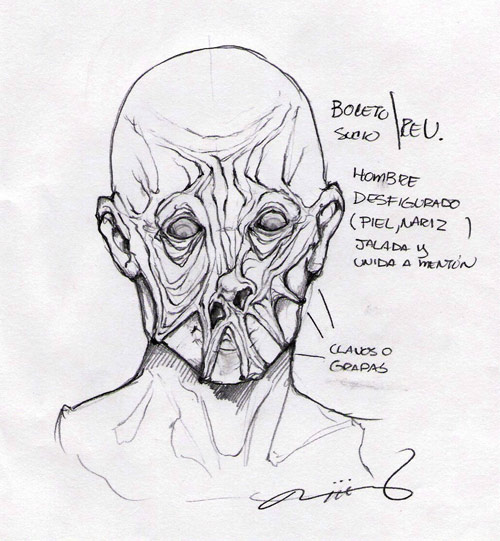 BOLETO / REU.
SUCIO
HOMBRE
DESFIGURADO
(PIEL, NARIZ )
JALADA y
UNIDA A MENTÓN
CLAVOS O
GRAPAS